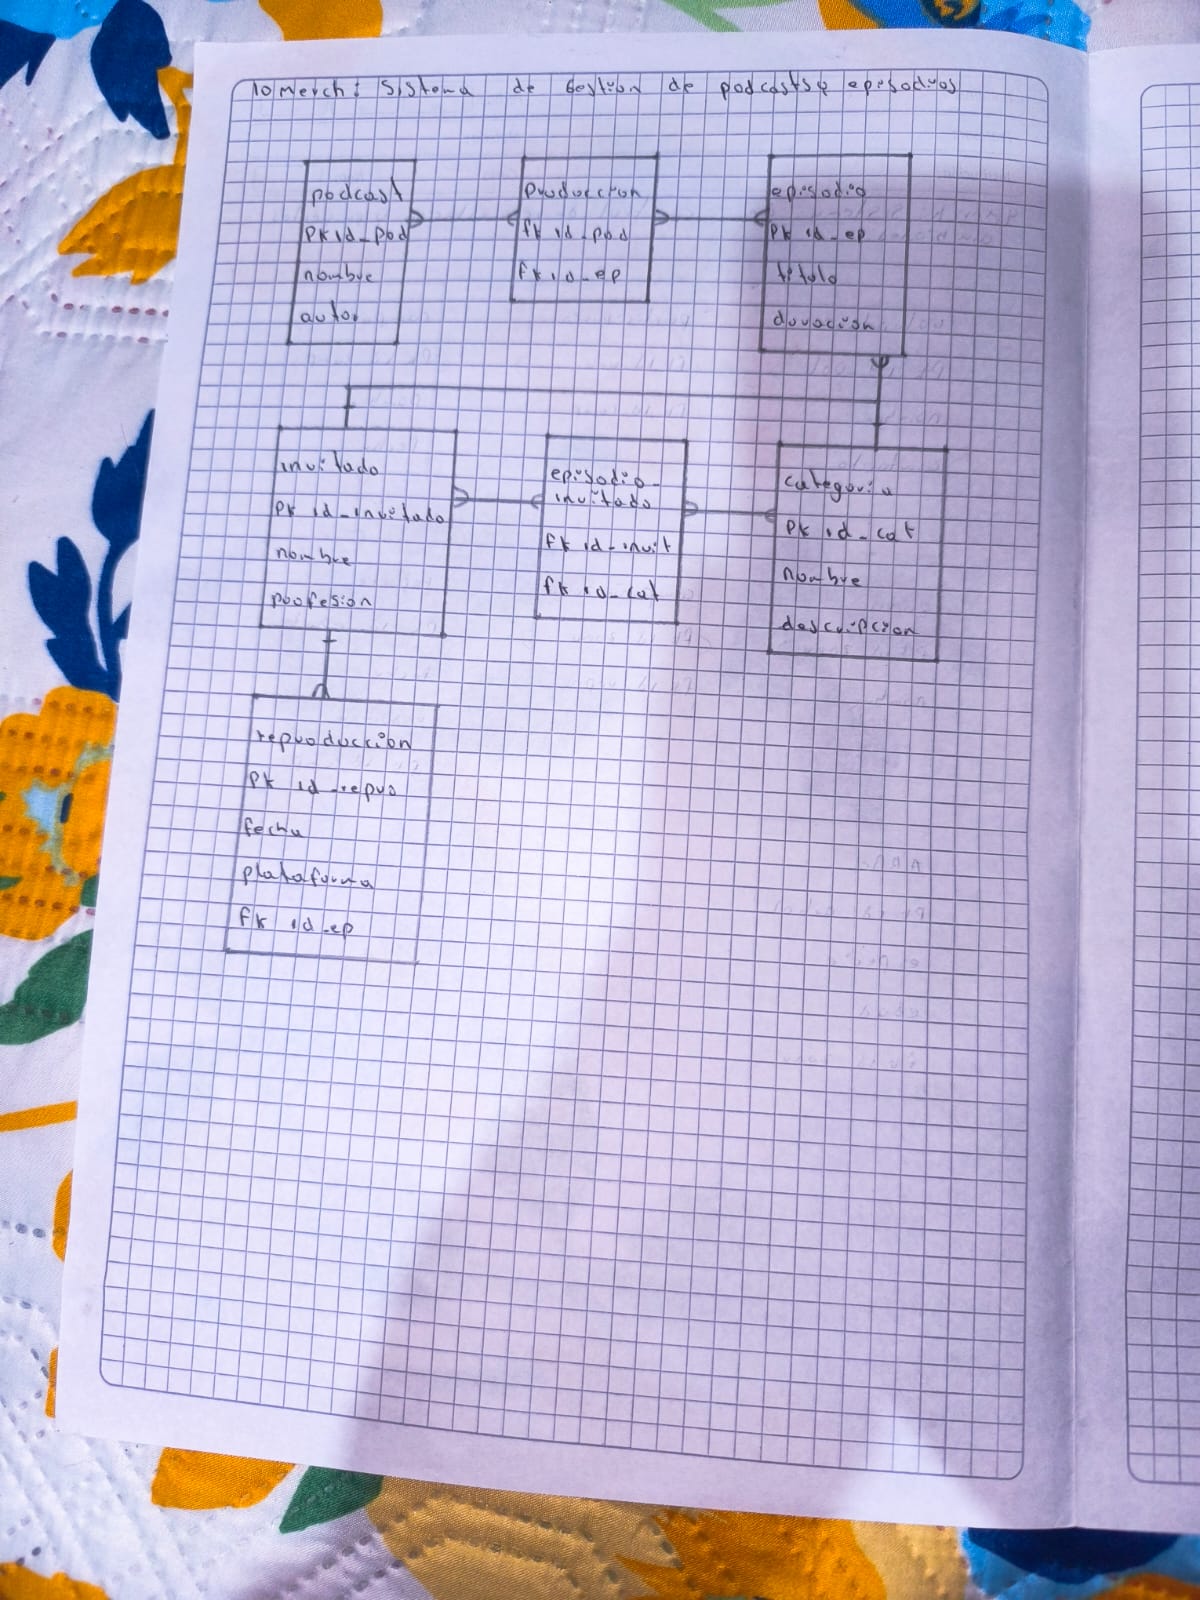 10 merch: Sistema de Gestion de podcasts y episodios
podcast
PK id_pod
nombre
autor
Produccion
fk id_pod
fk id_ep
episodio
PK id_ep
titulo
duracion
invitado
PK id_invitado
nombre
profesion
episodio_
invitado
fk id_invit
fk id_cat
categoria
PK id_cat
nombre
descripcion
reproduccion
PK id_repro
fecha
plataforma
fk id_ep